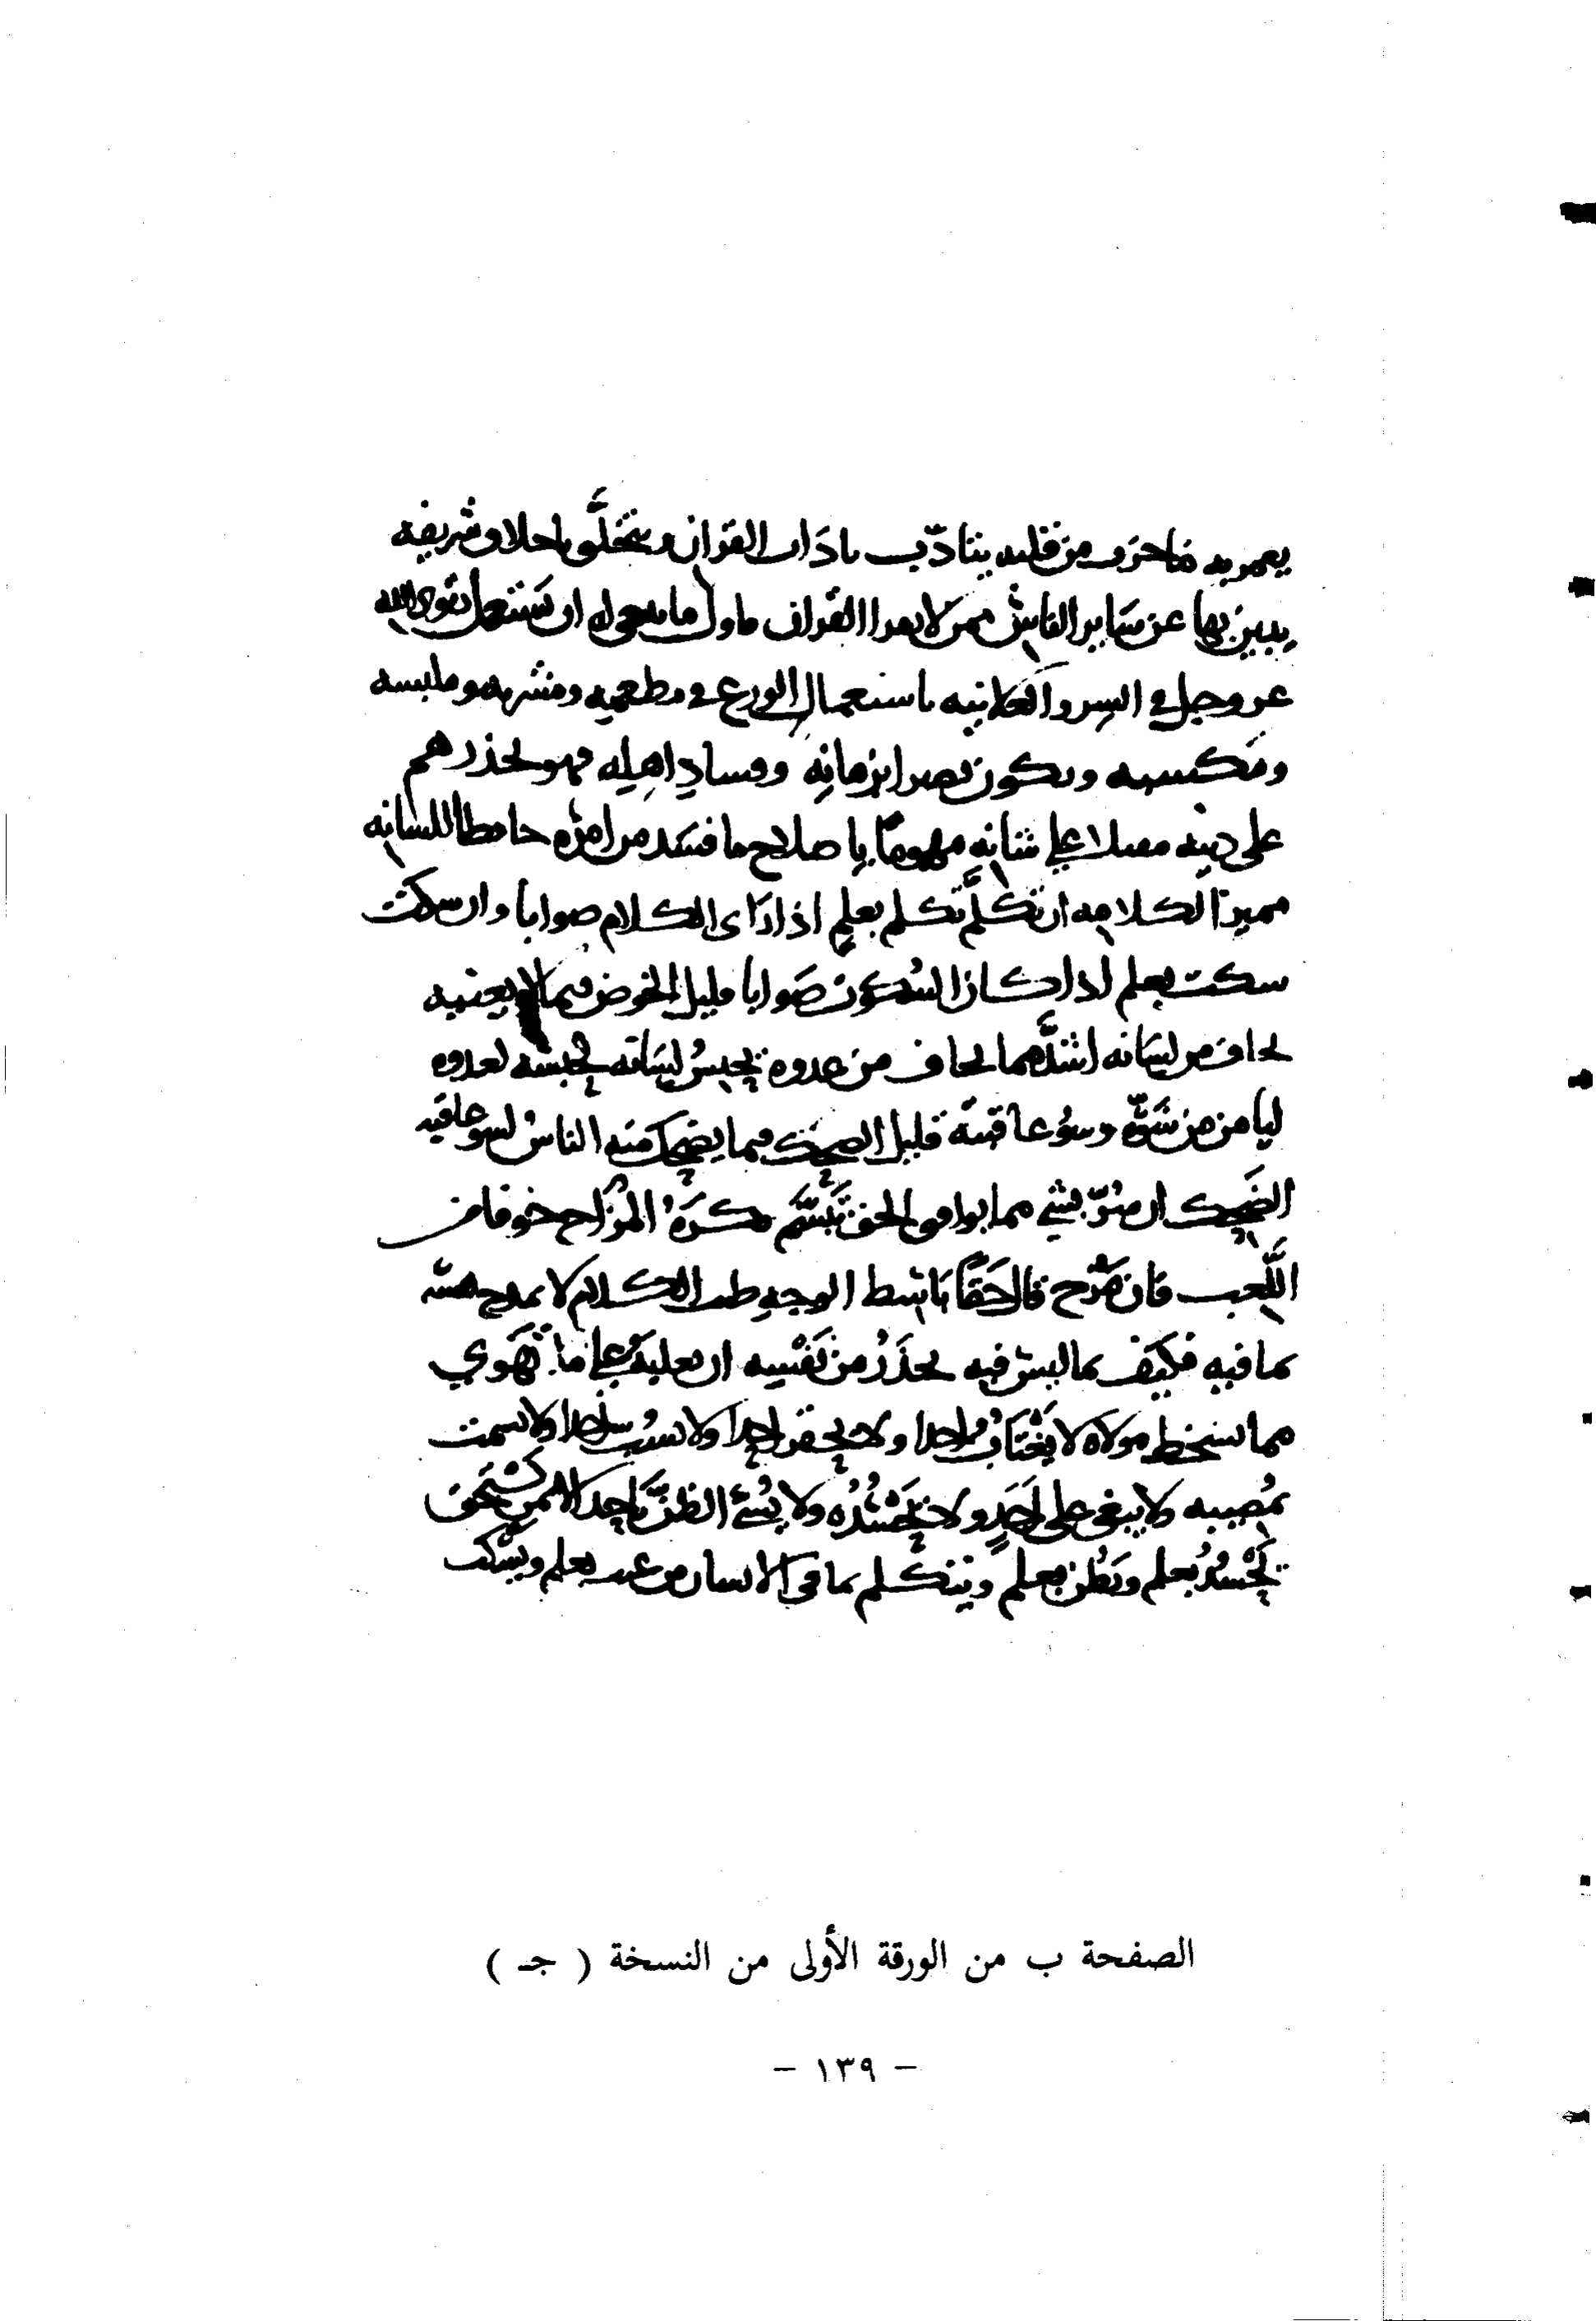 يعمر به ما خرب من قلبه يتادب باداب القران ويتخلق باخلاق شريفه
يبين بها عن ساير الناس ممن لا يقرا القران فاول ما ينبغي له ان يستعمل تقوى الله
عز وجل في السر والعلانيه باستعمال الورع في مطعمه ومشربه وملبسه
ومكسبه ويكون بصيرا بزمانه وفساد اهله فهو يحذرهم
على دينه مقبلا على شانه مهموما باصلاح ما فسد من امره حافظا للسانه
مميزا لكلامه ان تكلم تكلم بعلم اذا راى الكلام صوابا وان سكت
سكت بعلم اذا كان السكوت صوابا قليل الخوض فيما لا يعنيه
يخاف من لسانه اشد مما يخاف من عدوه يحبس لسانه كحبسه لعدوه
ليامن من شره وسوء عاقبته قليل الضحك فيما يضحك منه الناس لسوء عاقبه
الضحك ان سُرّ بشي مما يوافق الحق تبَسَّم يكرَهُ المزاح خوفا من
اللَّعب فان مَزَح قال حَقاً باسط الوجه طيب الكلام لا يمدح نفسه
بما فيه فكيف بما ليس فيه يحذَرُ من نَفْسِه ان تغلبه على ما تهوي
مما يسخط مولاه لا يَغْتَابُ احدا ولا يحقر احدا ولا يسُب احدا ولا يشمت
بمُصيبه ولا يبغي على اَحَدٍ ولا يَحْسُدُه ولا يُسئُ الظنَّ باحد الا بمن يَسْتحق
يَحْسُدُ بعلم ويَظُن بعلم ويتكلم بما في الانسان من عيب بعلم ويسكت
الصفحة ب من الورقة الأولى من النسخة ( جـ )
- ١٣٩ -